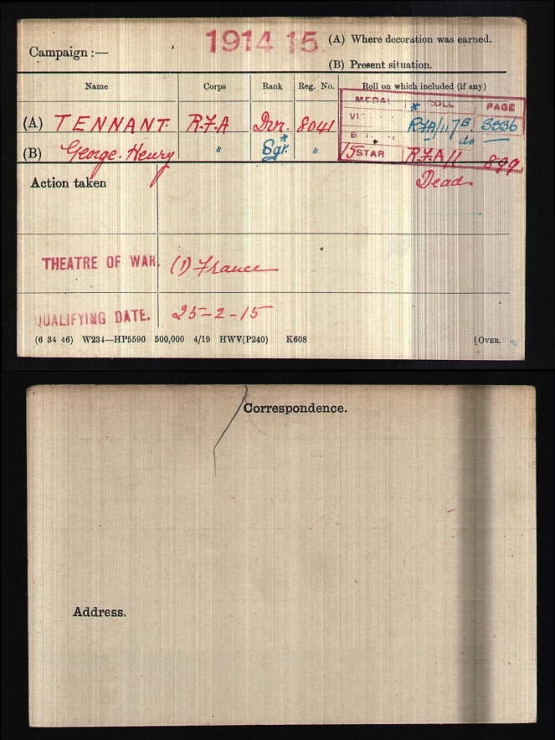 Campaign :— 1914 15. (A) Where decoration was earned.
(B) Present situation.
Name Corps Rank Reg. No. Roll on which included (if any)
MEDAL ROLL PAGE
(A) TENNANT R.F.A Dvr. 8041 * RFA/117B. 3536
(B) George Henry " Sgt.* " do
15 STAR R.F.A/1 899
Action taken Dead
THEATRE OF WAR. (1) France
QUALIFYING DATE. 25-2-15
(6 34 46) W234—HP5590 500,000 4/19 HWV(P240) K608 [OVER.
Correspondence.
Address.